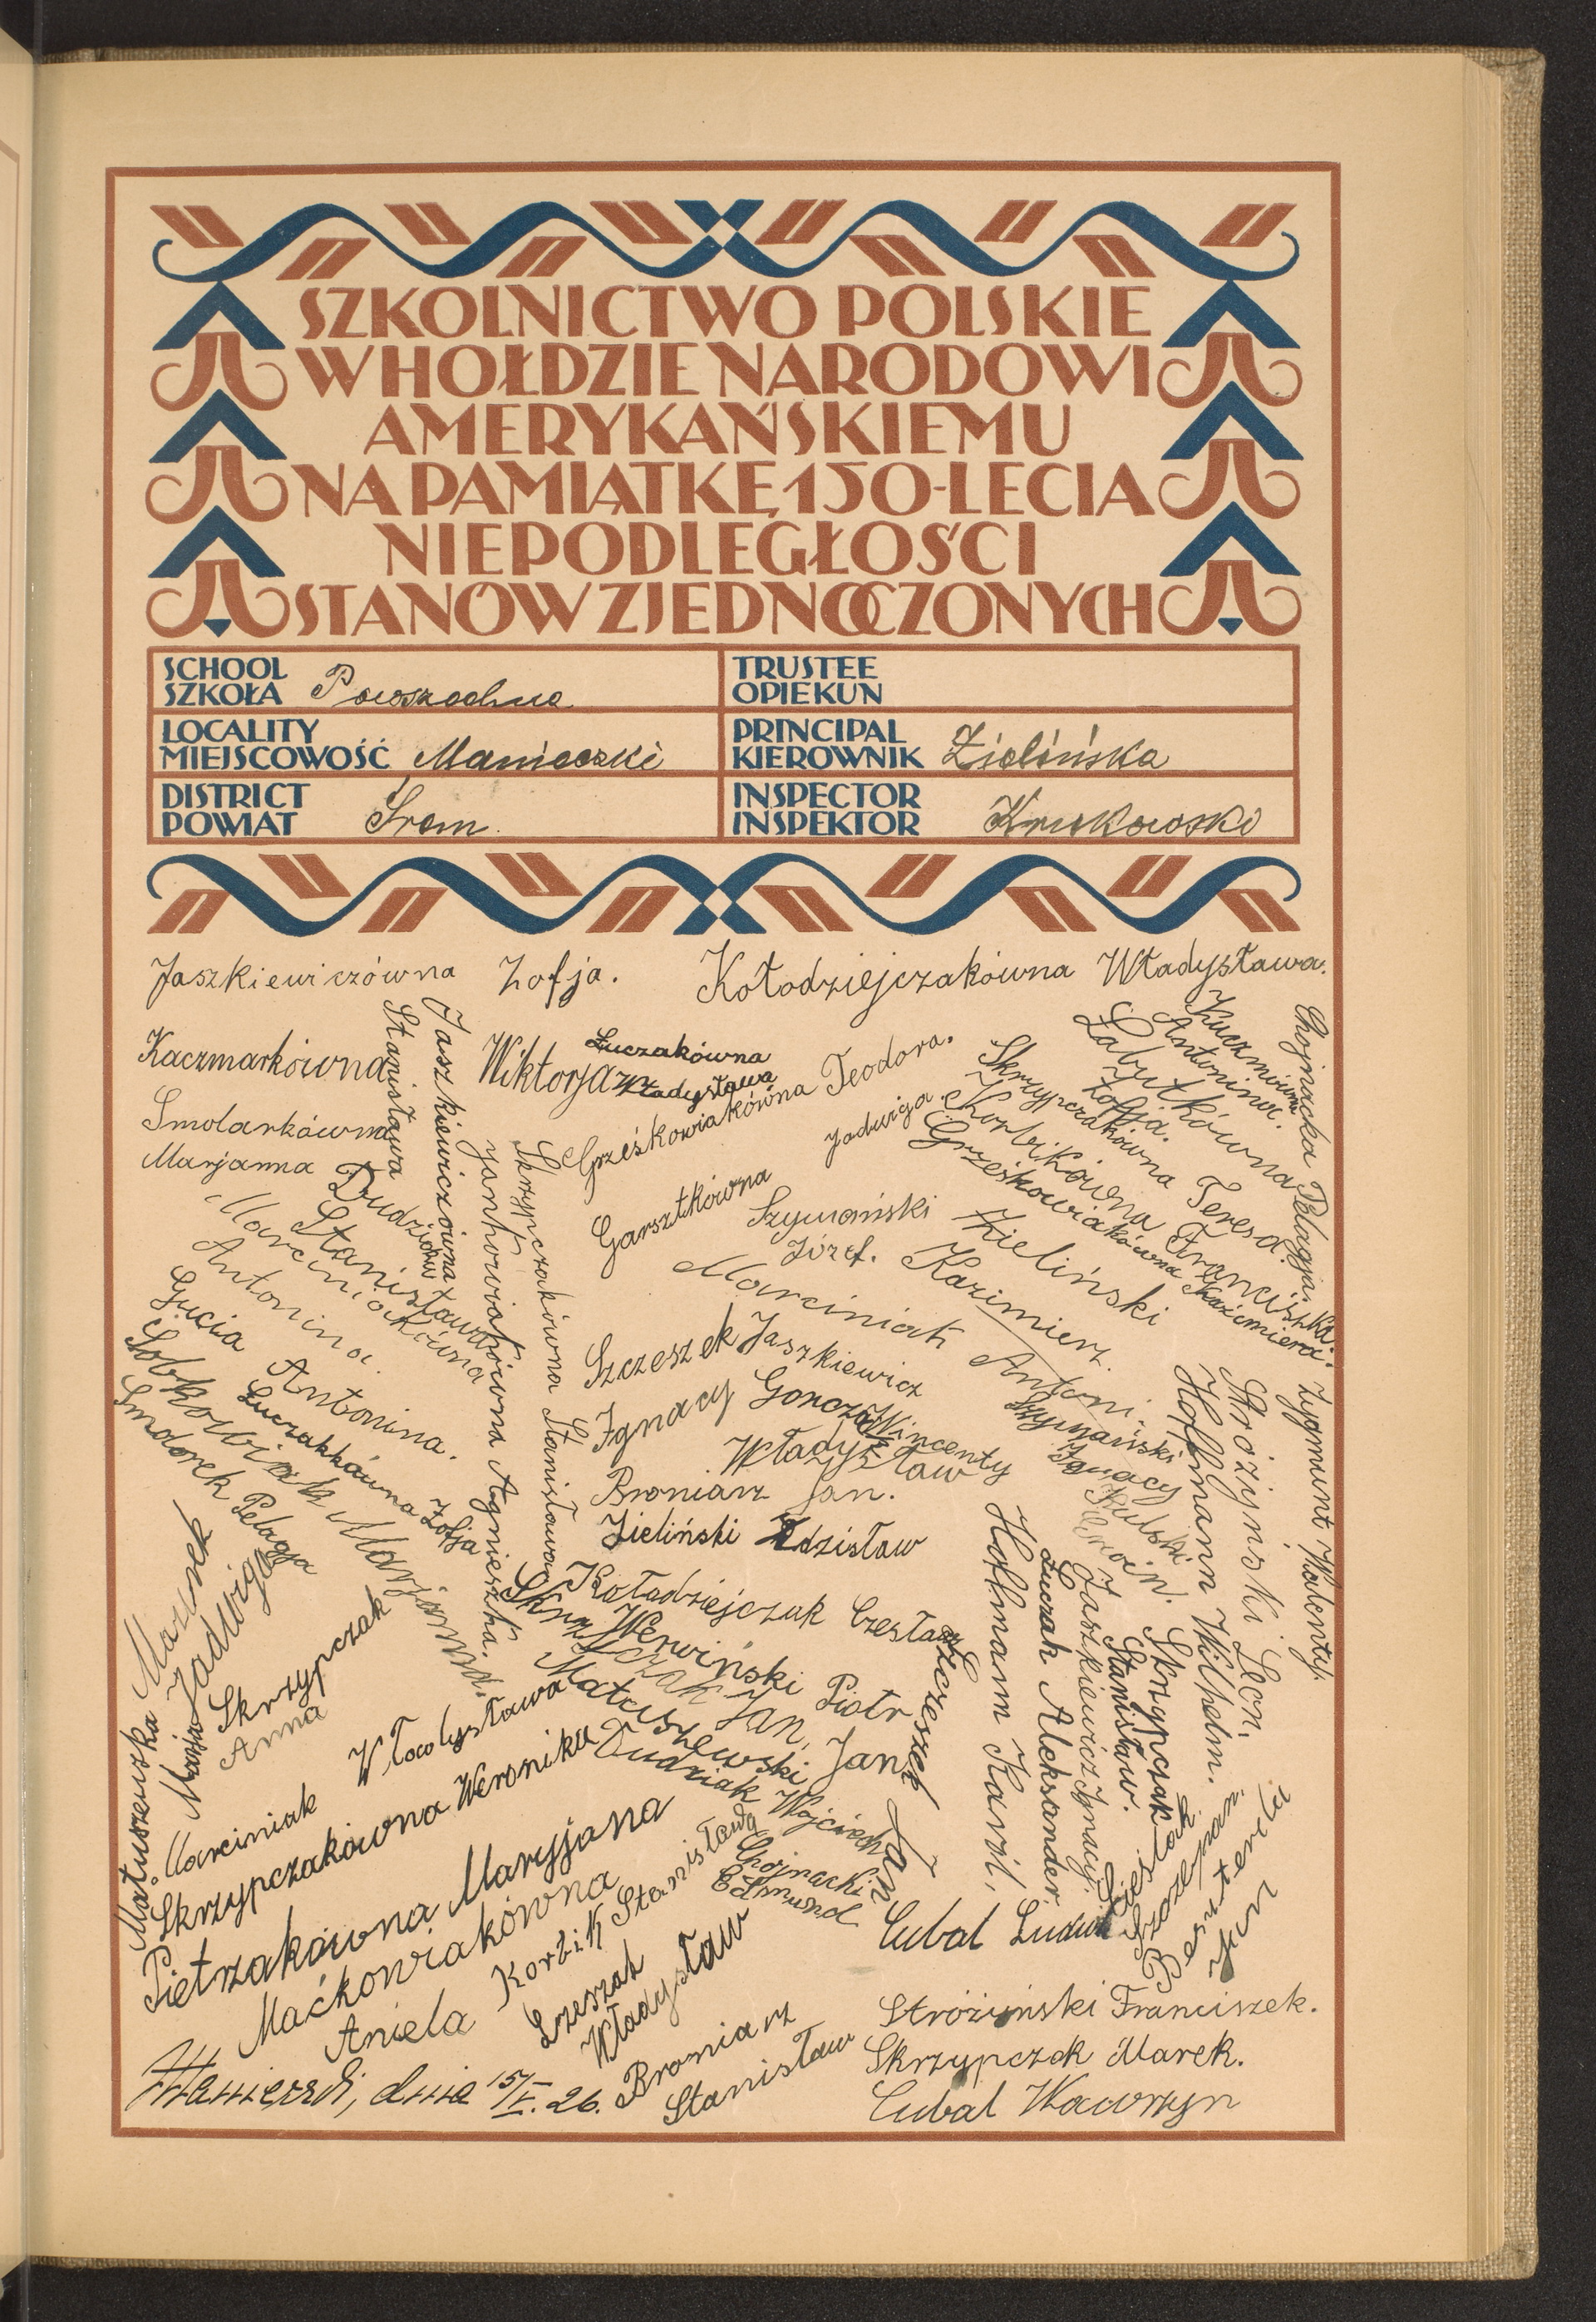 SZKOLNICTWO POLSKIE
W HOŁDZIE NARODOWI
AMERYKAŃSKIEMU
NA PAMIĄTKĘ 150-LECIA
NIEPODLEGŁOŚCI
STANÓW ZJEDNOCZONYCH
SCHOOL
SZKOŁA Powszechna
TRUSTEE
OPIEKUN
LOCALITY
MIEJSCOWOŚĆ Manieczki
PRINCIPAL
KIEROWNIK Zielińska
DISTRICT
POWIAT Śrem.
INSPECTOR
INSPEKTOR Krukowski
Jaszkiewiczówna Zofja.
Kołodziejczakówna Władysława.
Kaczmarkówna Wiktorja
Stanisława
Jaszkiewiczówna
Łuczakówna
Władysława
Grześkowiakówna Teodora.
Smolarkówna
Marjanna
Garsztkówna Jadwiga.
Kuczmówna
Antonina.
Łabutkówna
Zofja.
Chojnacka Pelagja.
Skrzypczakówna Teresa.
Korbikówna Franciszka.
Grześkowiakówna Kazimiera.
Stanisława
Marciniakówna
Antonina.
Jankowiakówna Agnieszka.
Skrzypczakówna Stanisława
Gucia Antonina.
Łuczakówna Zofja
Sobkowiak Marjanna.
Smolorek Pelagja
Szymański
Józef.
Zieliński
Kazimierz.
Marciniak Antoni.
Szczeszek
Ignacy
Jaszkiewicz
Wincenty
Gorczak
Władysław
Broniarz Jan.
Zieliński Zdzisław
Szymański
Ignacy
Rulski
Strózyński Leon.
Hoffmann Wilhelm.
Zygmunt Walenty.
Hofmann Karól.
Łuczak Aleksander
Jaszkiewicz Ignacy.
Stanisław.
Skrzypczak
Koładziejczak Czesław
Werwiński Piotr
Skrzypczak Jan.
Matuszewski Jan
Dudziak Wojciech
Szczeszek
Jan
Chojnacki
Edmund
Mazurek
Jadwiga
Skrzypczak
Anna
Matuszewska Marja
Marciniak Władysława
Skrzypczakówna Weronika
Pietrzakówna Maryjana
Maćkowiakówna
Aniela
Korbik Stanisława
Władysław
Cubal Ludwik
Cieślak
Szczepan.
Jan
Stróżyński Franciszek.
Skrzypczak Marek.
Cubal Wawrzyn
Broniarz
Stanisław
Manieczki, dnia 15/V. 26.